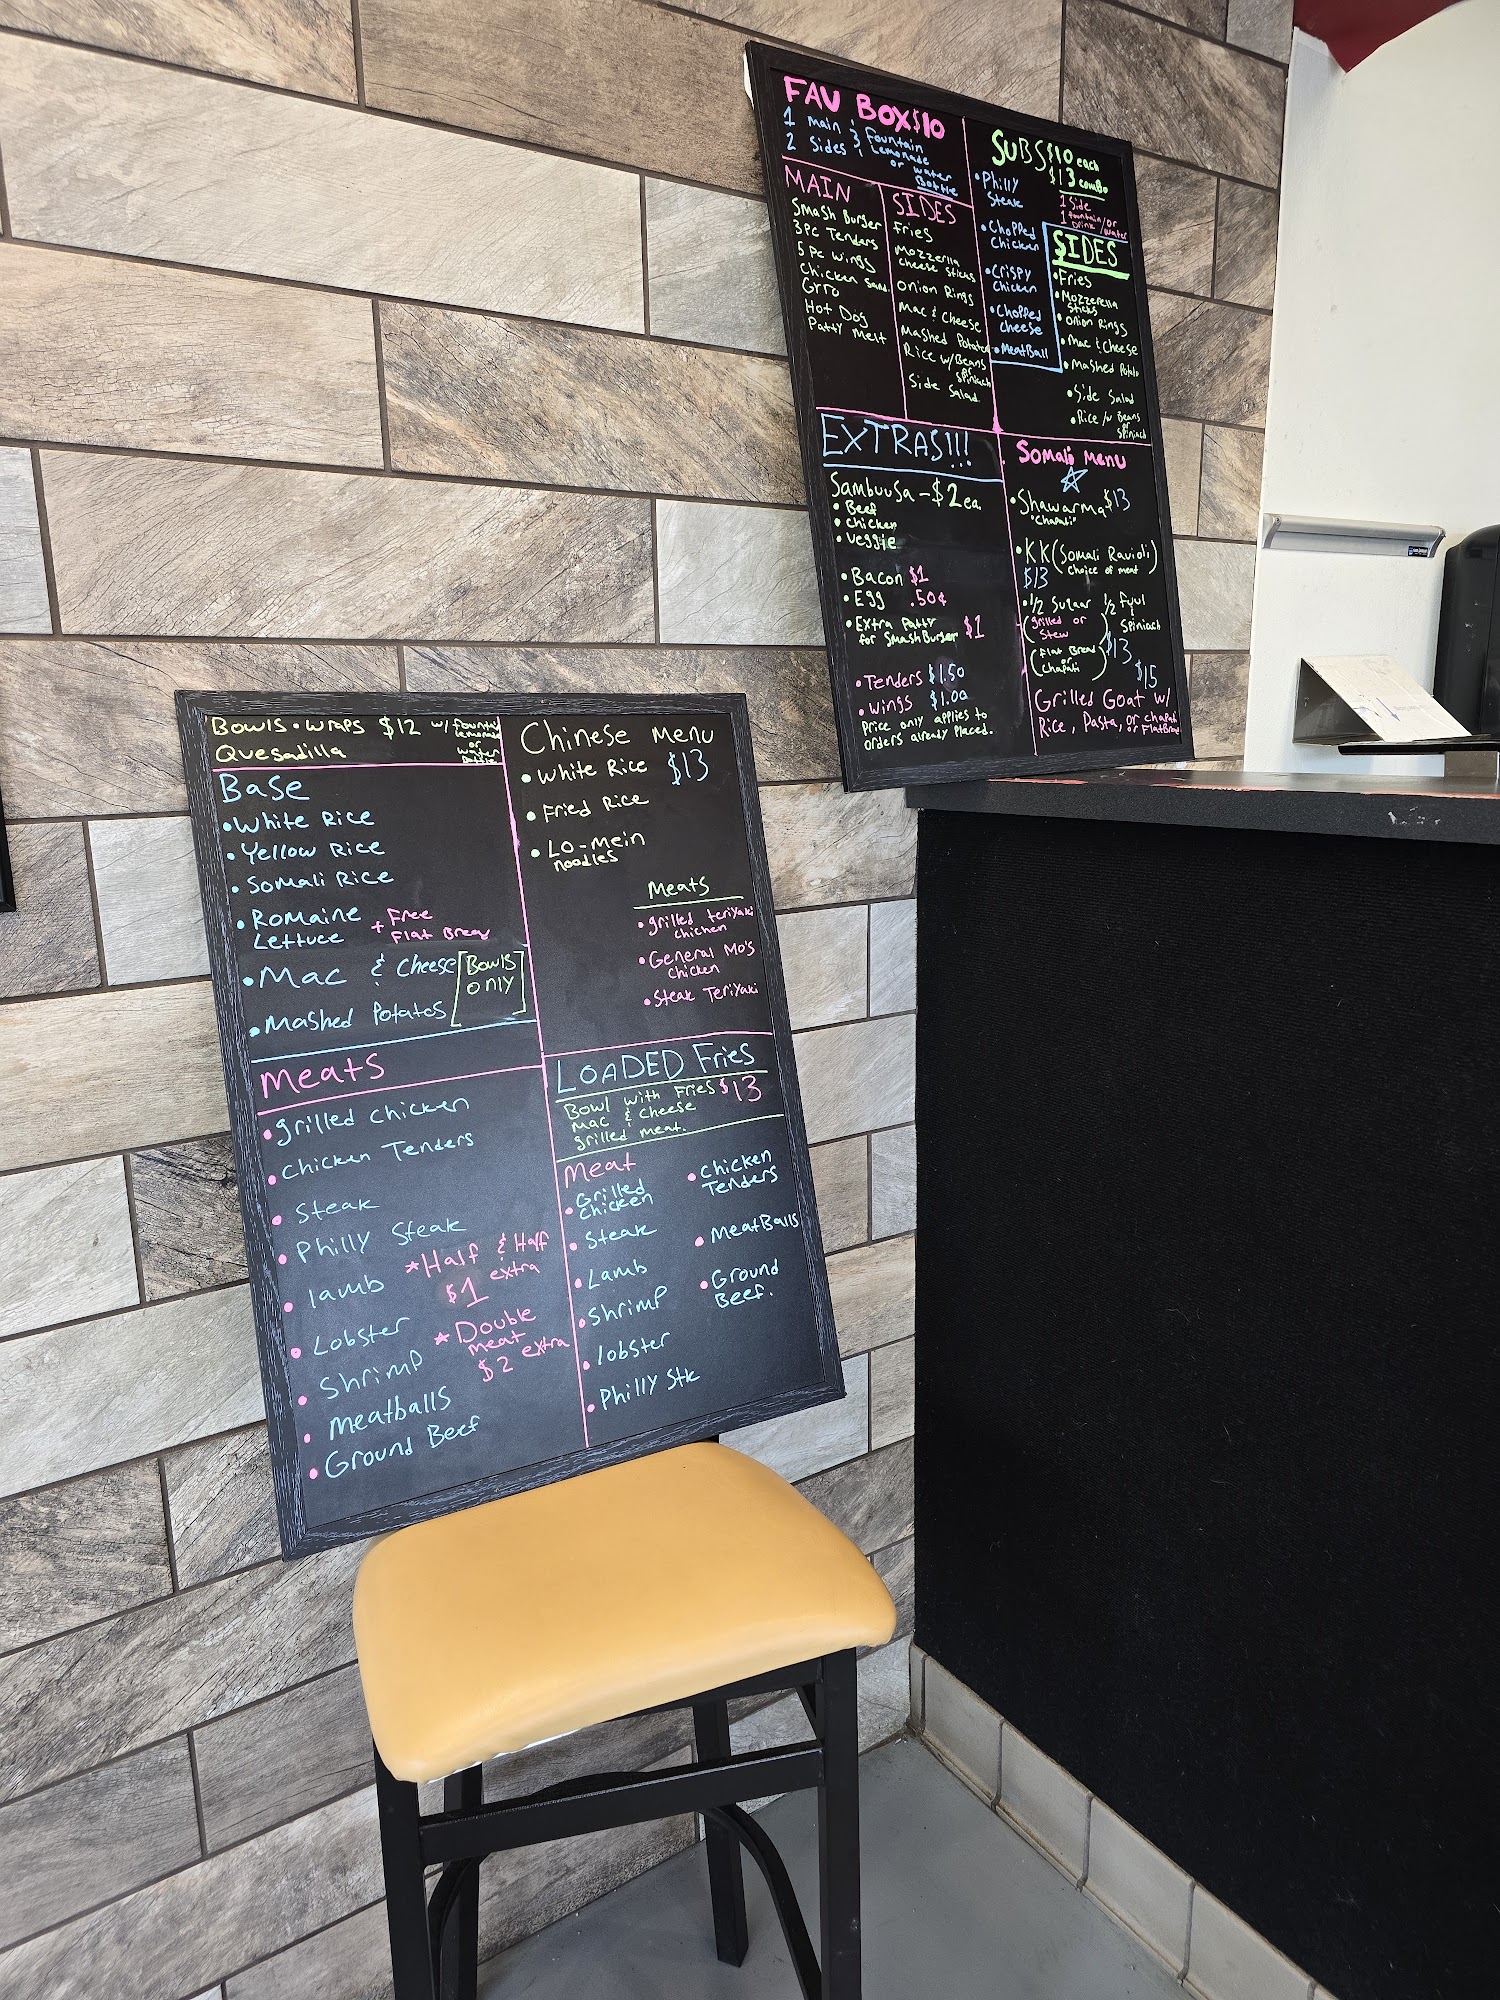 FAV BOX $10
1 main & Fountain
2 Sides & Lemonade
or water
Bottle
MAIN
Smash Burger
3pc Tenders
5 Pc wings
Chicken Sand.
Gyro
Hot Dog
Patty Melt
SIDES
Fries
Mozzerella
cheese sticks
onion Rings
Mac & Cheese
Mashed Potatos
Rice w/Beans
or
Spiniach
Side Salad
SUBS $10 each
$13 combo
1 Side
1 fountain/or
Drink/water
• Philly
Steak
• Chopped
Chicken
• Crispy
Chicken
• Chopped
cheese
• MeatBall
SIDES
• Fries
• Mozzerella
Sticks
• onion Rings
• Mac & Cheese
• Mashed Potato
• Side Salad
• Rice /w Beans
or
Spiniach
EXTRAS!!!
Sambuusa - $2 ea.
• Beef
• chicken
• veggie
• Bacon $1
• Egg .50¢
• Extra Patty
for SmashBurger $1
• Tenders $1.50
• wings $1.00
Price only applies to
orders already Placed.
Somali menu
• Shawarma $13
"chapati"
• KK (Somali Ravioli)
choice of meat
$13
• 1/2 Suqaar 1/2 Fuul
& Spiniach
(grilled or
Stew)
(Flat Bread
or
Chapati) $13
$15
Grilled Goat w/
Rice, Pasta, or chapati
or FlatBread
Bowls • wraps $12 w/ fountain
Lemonade
or
water
Bottle
Quesadilla
Base
• White Rice
• Yellow Rice
• Somali Rice
• Romaine
Lettuce + Free
Flat Bread
• Mac & cheese [Bowls
only]
• Mashed Potatos
Meats
• grilled chicken
• chicken Tenders
• Steak
• Philly Steak
• lamb
• Lobster
• Shrimp
• meatballs
• Ground Beef
* Half & Half
$1 extra
* Double
meat
$2 extra
Chinese menu
• White Rice $13
• Fried Rice
• Lo-mein
noodles
Meats
• grilled teriyaki
chicken
• General Mo's
chicken
• Steak Teriyaki
LOADED Fries
Bowl with Fries $13
mac & cheese
grilled meat.
Meat
• Grilled
Chicken
• Steak
• Lamb
• Shrimp
• lobster
• Philly Stk
• chicken
Tenders
• MeatBalls
• Ground
Beef.